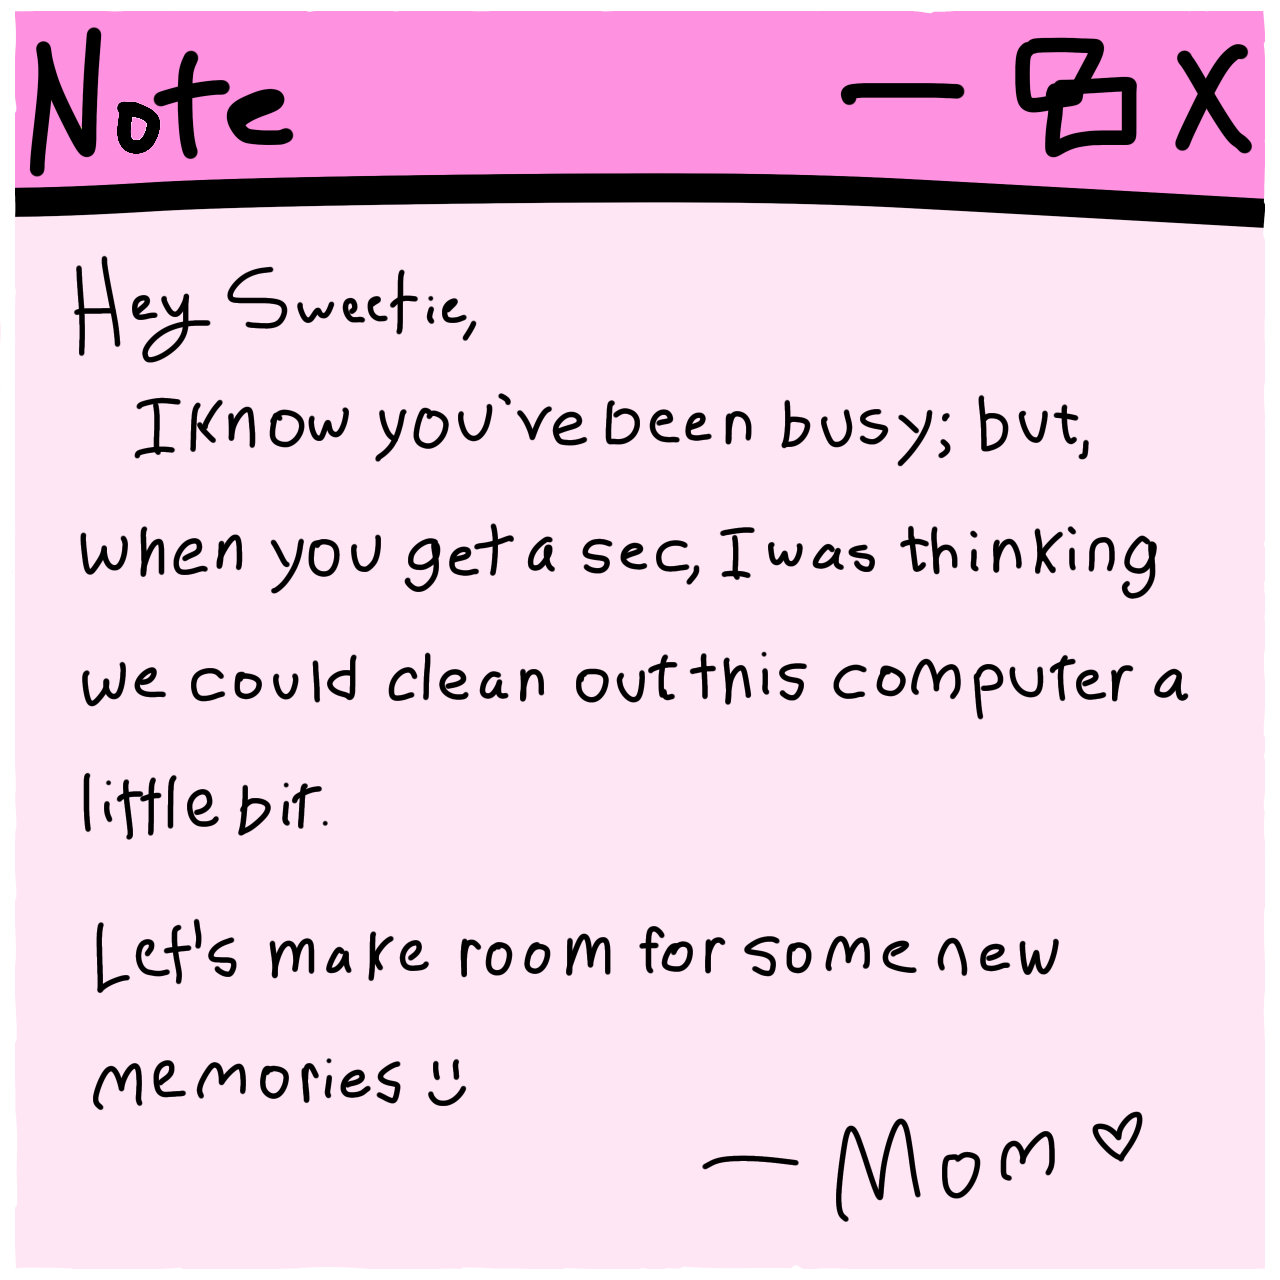 Note
Hey Sweetie,
I know you've been busy; but,
when you get a sec, I was thinking
we could clean out this computer a
little bit.
Let's make room for some new
memories :)
— Mom ♡